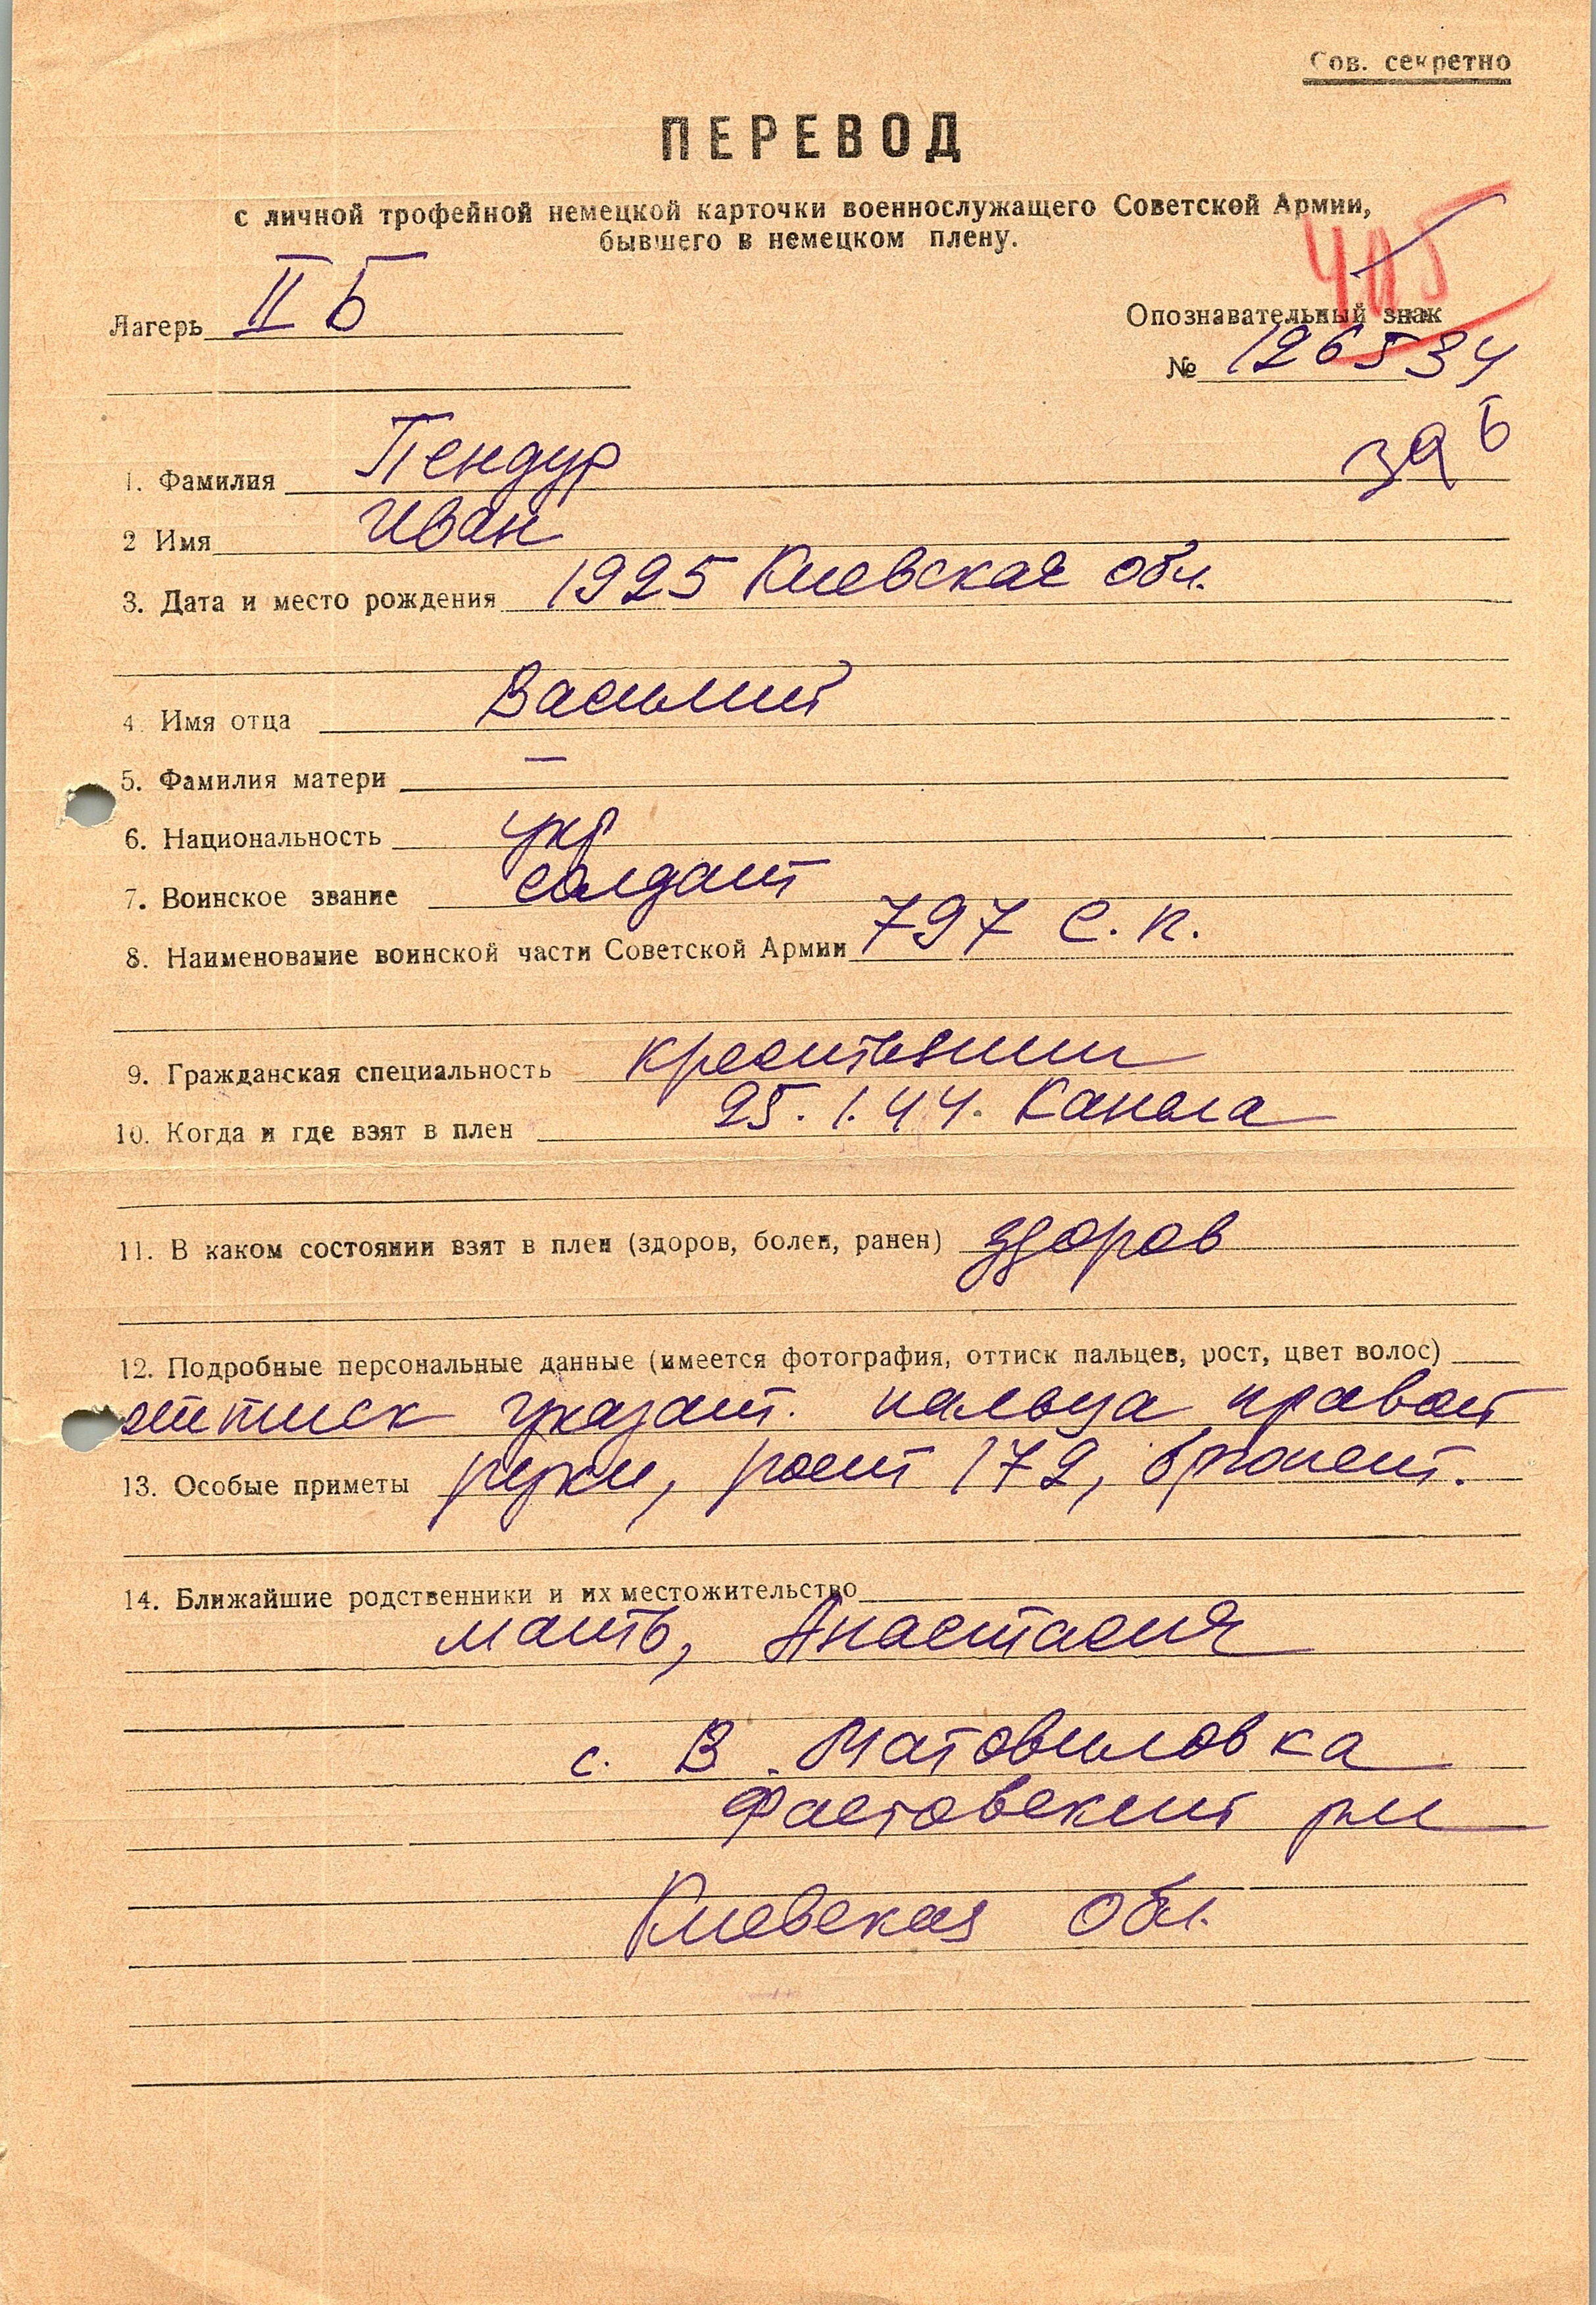 Сов. секретно
ПЕРЕВОД
с личной трофейной немецкой карточки военнослужащего Советской Армии,
бывшего в немецком плену.
Лагерь II Б
Опознавательный знак
№ 126534
1. Фамилия Пендур
2 Имя Иван
3. Дата и место рождения 1925 Киевская обл.
4. Имя отца Василий
5. Фамилия матери —
6. Национальность укр
7. Воинское звание солдат
8. Наименование воинской части Советской Армии 797 с.п.
9. Гражданская специальность
10. Когда и где взят в плен 25.1.44. Канела
11. В каком состоянии взят в плен (здоров, болен, ранен) здоров
12. Подробные персональные данные (имеется фотография, оттиск пальцев, рост, цвет волос)
оттиск указат. пальца правой
13. Особые приметы руки, рост 172, брюнет.
14. Ближайшие родственники и их местожительство
мать, Анастасия
с. В. Мотовиловка
Фастовский
Киевская обл.